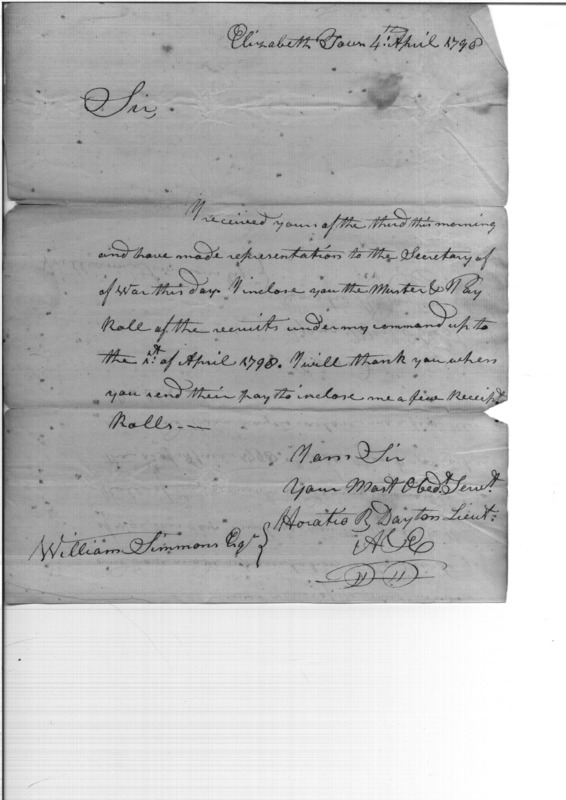 Elizabeth Town 4th April 1798
Sir,
I received yours of the third this morning
and have made representations to the Secretary of
of War this day. I inclose you the Muster & Pay
Roll of the recruits under my command up to
the 1st of April 1798. I will thank you when
you send their pay to inclose me a few Receipt
Rolls.—
I am Sir
Your Most Obedt Servt
Horatio R Dayton Lieut:
William Simmons Esqr